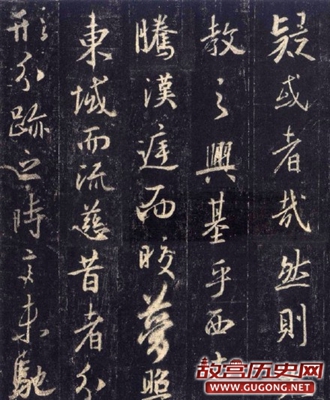 疑或者哉然則
教之興基乎西
騰漢庭而皎夢照
東域而流慈昔者分
形分跡之時言未馳
故宫历史网
WWW.GUGONG.NET